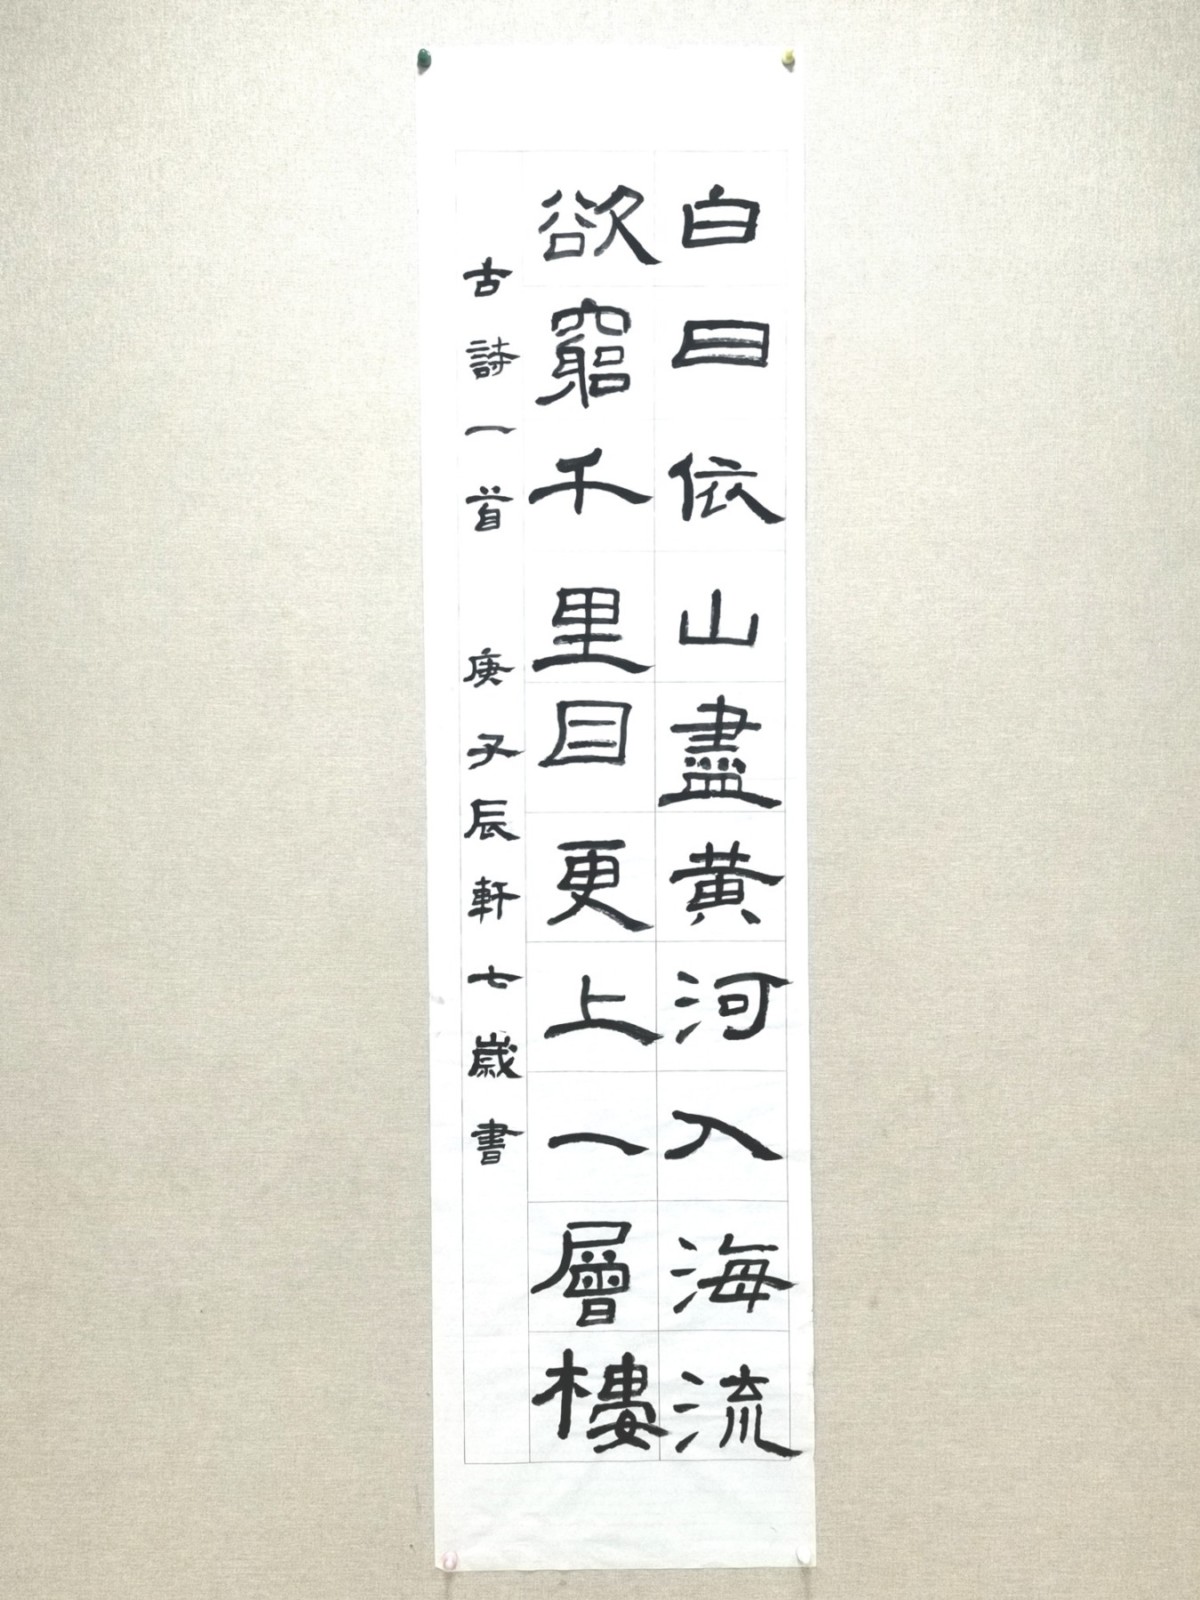 白日依山盡黄河入海流
欲窮千里目更上一層樓
古詩一首 庚子辰軒七歲書